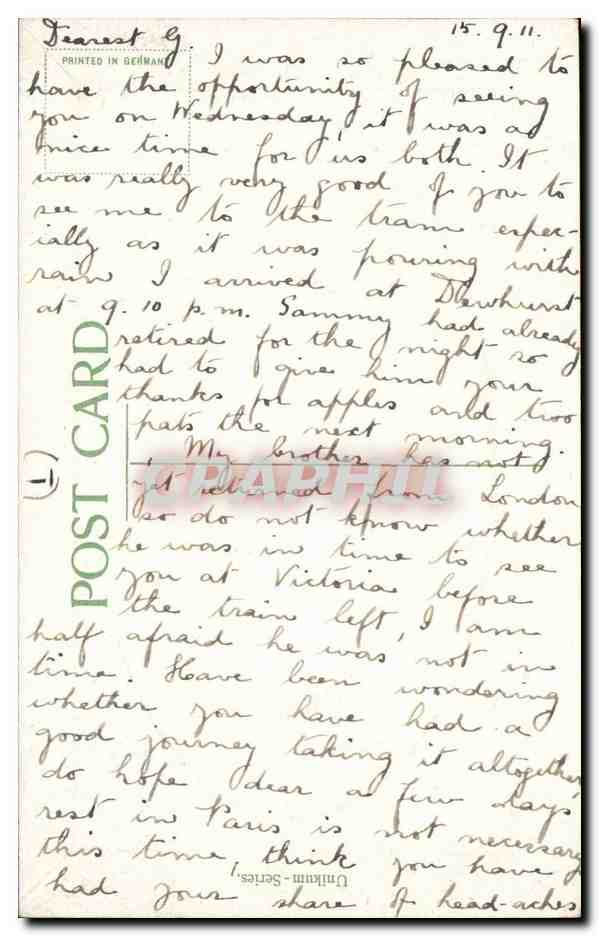 15.9.11.
Dearest G. I was so pleased to
PRINTED IN GERMANY
have the opportunity of seeing
you on Wednesday, it was a
nice time for us both. It
was really very good of you to
see me to the tram espec-
ially as it was pouring with
rain I arrived at Dewhurst
at 9.10 p.m. Sammy had already
retired for the night so
had to give him your
thanks for apples and two
pats the next morning.
My brother has not
yet returned from London
so do not know whether
he was in time to see
you at Victoria before
the train left, I am
half afraid he was not in
time. Have been wondering
whether you have had a
good journey taking it altogether,
do hope dear a few days
rest in Paris is not necessary
this time, think you have
had your share of head-aches
POST CARD
(1)
CPAPHIL
Unikum-Series,